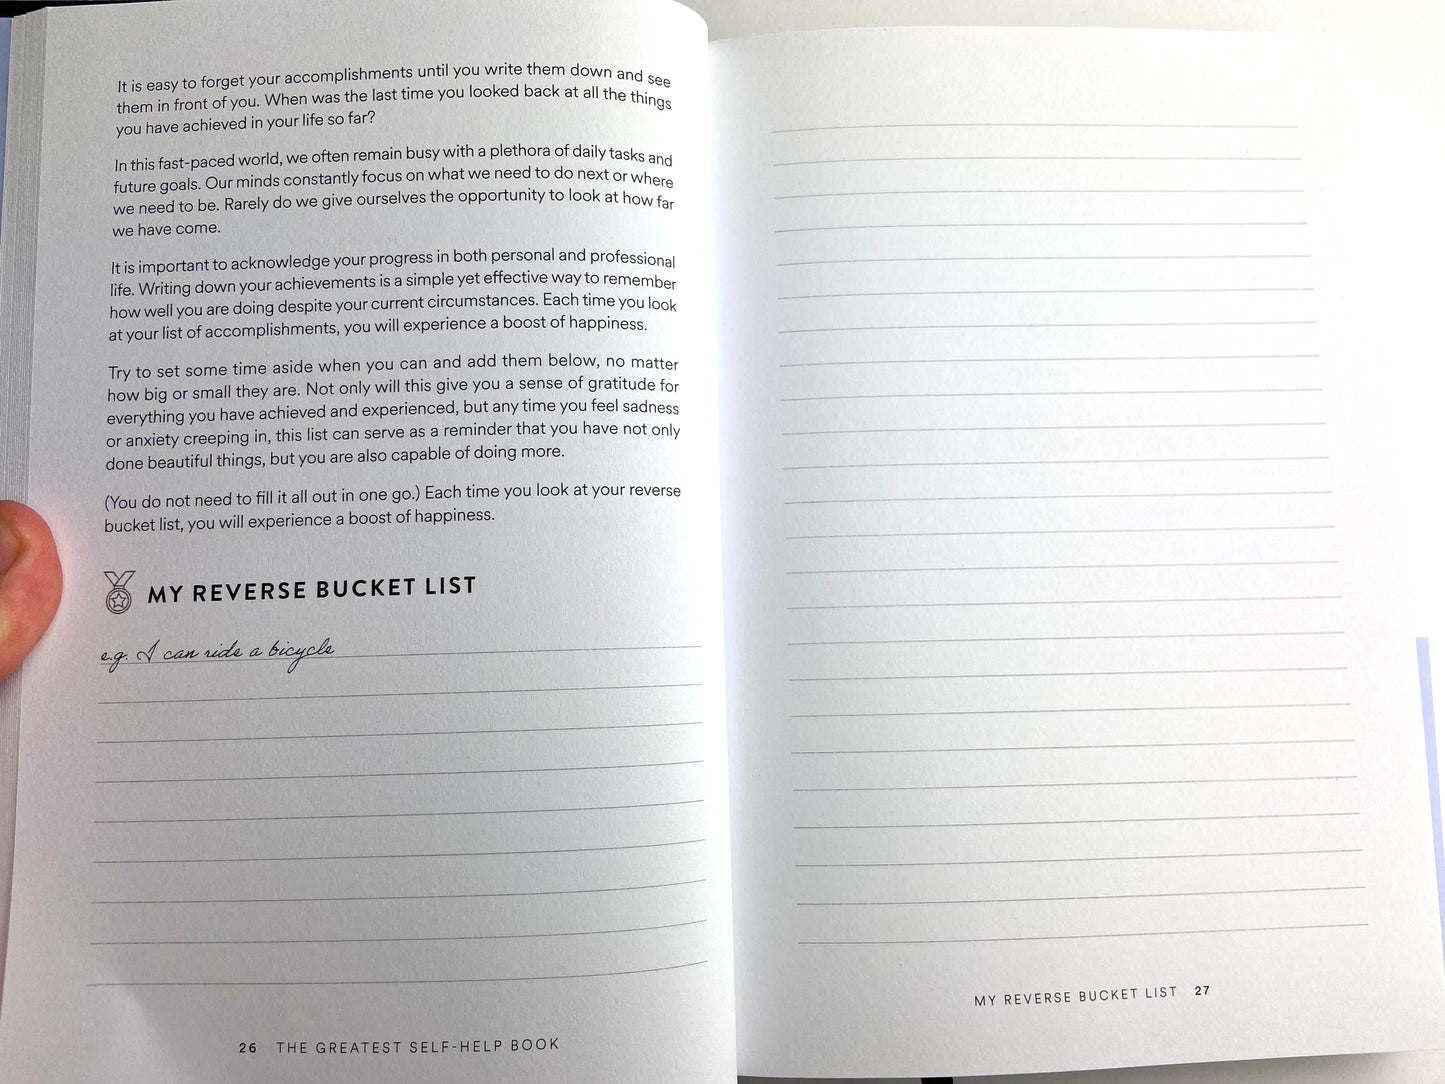 It is easy to forget your accomplishments until you write them down and see
them in front of you. When was the last time you looked back at all the things
you have achieved in your life so far?
In this fast-paced world, we often remain busy with a plethora of daily tasks and
future goals. Our minds constantly focus on what we need to do next or where
we need to be. Rarely do we give ourselves the opportunity to look at how far
we have come.
It is important to acknowledge your progress in both personal and professional
life. Writing down your achievements is a simple yet effective way to remember
how well you are doing despite your current circumstances. Each time you look
at your list of accomplishments, you will experience a boost of happiness.
Try to set some time aside when you can and add them below, no matter
how big or small they are. Not only will this give you a sense of gratitude for
everything you have achieved and experienced, but any time you feel sadness
or anxiety creeping in, this list can serve as a reminder that you have not only
done beautiful things, but you are also capable of doing more.
(You do not need to fill it all out in one go.) Each time you look at your reverse
bucket list, you will experience a boost of happiness.
MY REVERSE BUCKET LIST
e.g. I can ride a bicycle
26 THE GREATEST SELF-HELP BOOK
MY REVERSE BUCKET LIST 27